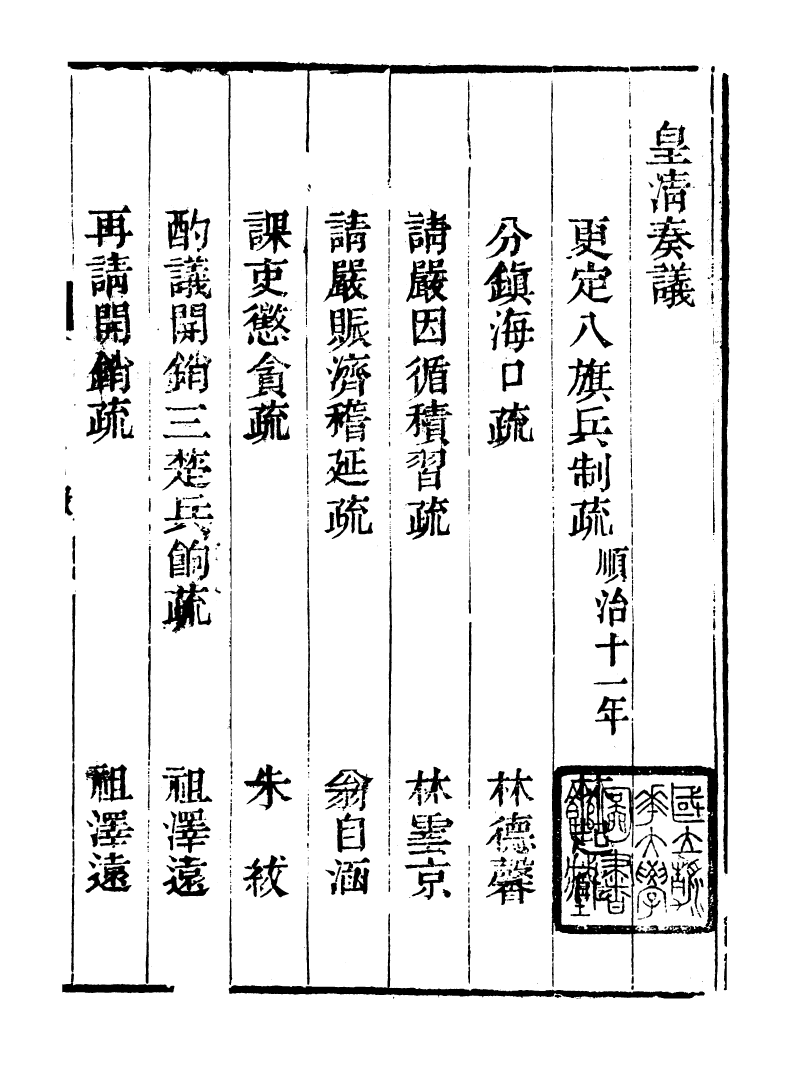 皇清奏議
更定八旗兵制疏 順治十一年 林起龍
分鎮海口疏 林德馨
請嚴因循積習疏 林雲京
請嚴賑濟稽延疏 翁自涵
課吏懲貪疏 朱紱
酌議開銷三楚兵餉疏 祖澤遠
再請開銷疏 祖澤遠
國立清華大學圖書館藏